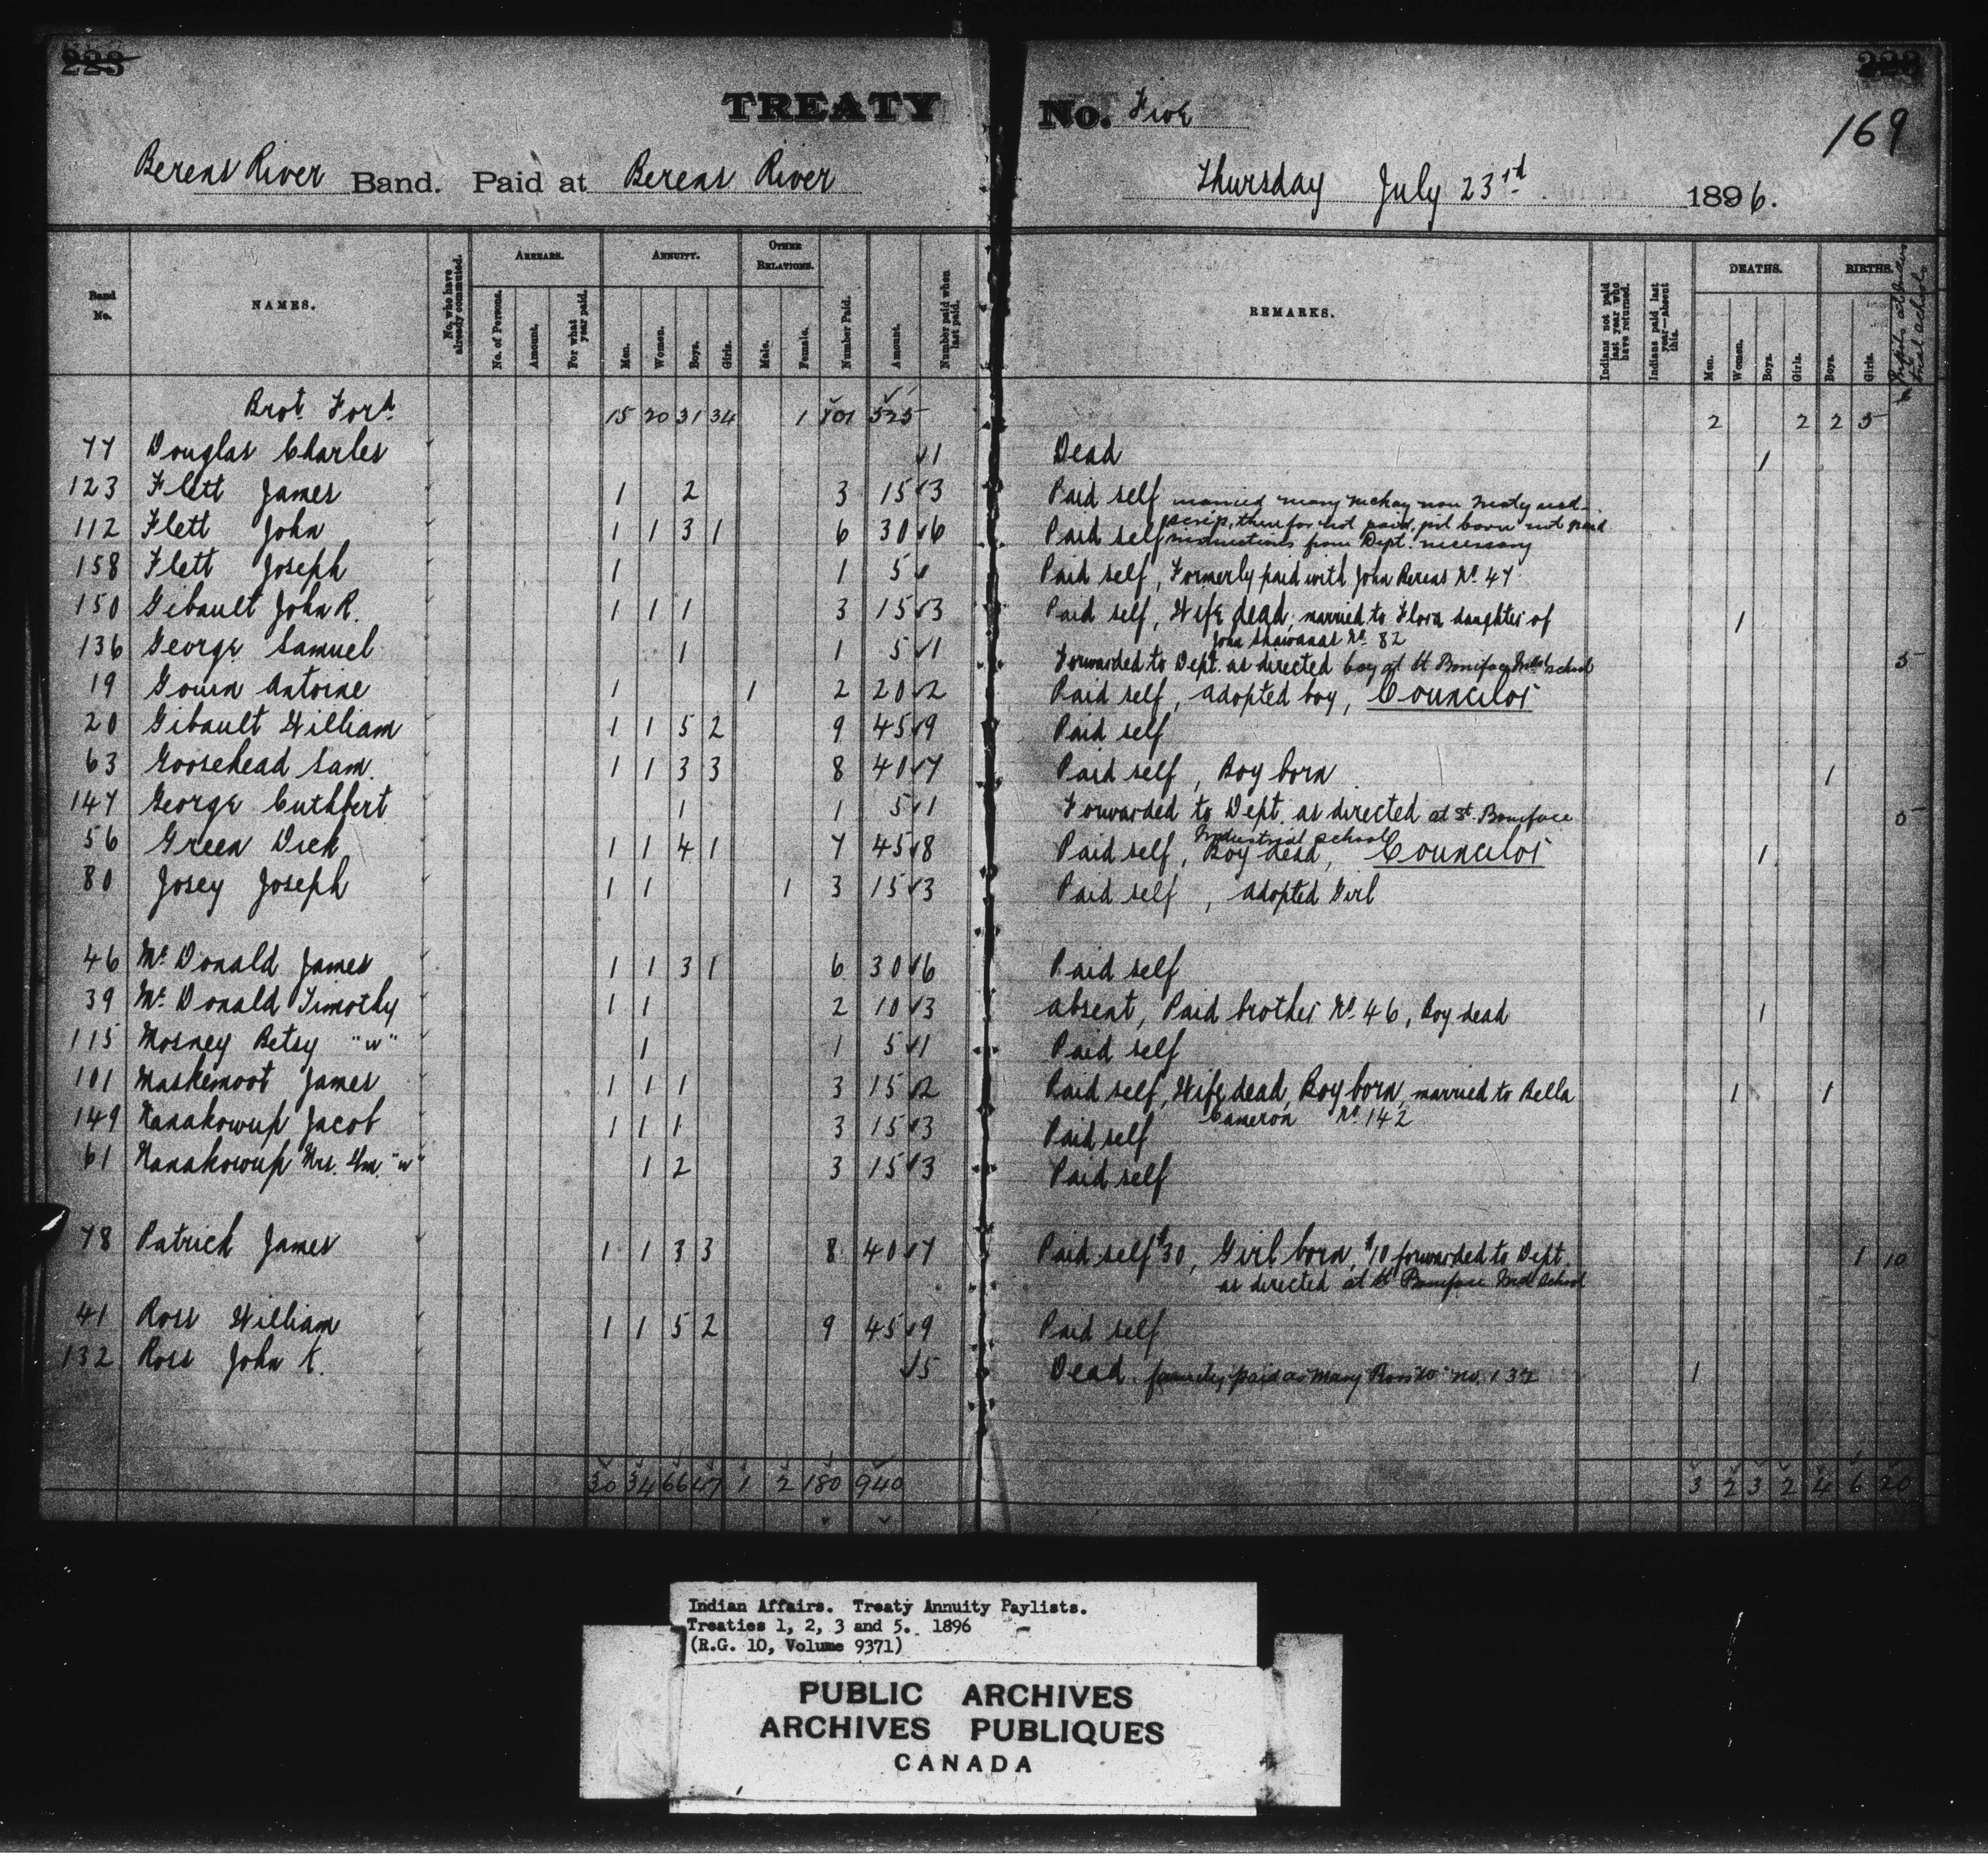 223
TREATY No. Five
169
Berens River Band. Paid at Berens River Thursday July 23rd 1896.
Band No. NAMES. No. who have already commuted. ARREARS. No. of Persons. Amount. For what year paid. ANNUITY. Men. Women. Boys. Girls. OTHER RELATIONS. Male. Female. Number Paid. Amount. Number paid when last paid. REMARKS. Indians not paid last year who have returned. Indians paid last year—absent this. DEATHS. Men. Women. Boys. Girls. BIRTHS. Boys. Girls.
Brot. Ford. 15 20 31 34 1 101 525 2 2 2 5
77 Douglas Charles 1 Dead 1
123 Flett James 1 2 3 15 3 Paid self married Mary McKay non treaty and
112 Flett John 1 1 3 1 6 30 6 Paid self scrip, therefor not paid, girl born not paid
instructions from Dept. necessary
158 Flett Joseph 1 1 5 Paid self, Formerly paid with John Berens No. 47
150 Gibault John R. 1 1 1 3 15 3 Paid self, Wife dead, married to Flora daughter of 1
John Shawanas No. 82
136 George Samuel 1 1 5 1 Forwarded to Dept. as directed boy at St Boniface Indl school 5
19 Gouin Antoine 1 1 2 20 2 Paid self, adopted boy, Councilor
20 Gibault William 1 1 5 2 9 45 9 Paid self
63 Goosehead Sam. 1 1 3 3 8 40 7 Paid self, Boy born 1
147 George Cuthbert 1 1 5 1 Forwarded to Dept. as directed at St. Boniface 5
Industrial school
56 Green Dick 1 1 4 1 7 45 8 Paid self, Boy dead, Councilor 1
80 Josey Joseph 1 1 1 3 15 3 Paid self, adopted Girl
46 Mc Donald James 1 1 3 1 6 30 6 Paid self
39 Mc Donald Timothy 1 1 2 10 3 absent, Paid brother No. 46, Boy dead 1
115 Mosney Betsy "w" 1 1 5 1 Paid self
101 Maskemoot James 1 1 1 3 15 2 Paid self, Wife dead, Boy born, married to Bella 1 1
Cameron No. 142
149 Nanakowup Jacob 1 1 1 3 15 3 Paid self
61 Nanakowup Mrs. Wm. "w" 1 2 3 15 3 Paid self
78 Patrick James 1 1 3 3 8 40 7 Paid self $30, Girl born, $10 forwarded to Dept. 1 10
as directed at St Boniface Ind School
41 Ross William 1 1 5 2 9 45 9 Paid self
132 Ross John K. 5 Dead family paid as Mary Ross "w" no. 132 1
30 34 66 47 1 2 180 940 3 2 3 2 4 6 20
Indian Affairs. Treaty Annuity Paylists.
Treaties 1, 2, 3 and 5. 1896
(R.G. 10, Volume 9371)
PUBLIC ARCHIVES
ARCHIVES PUBLIQUES
CANADA